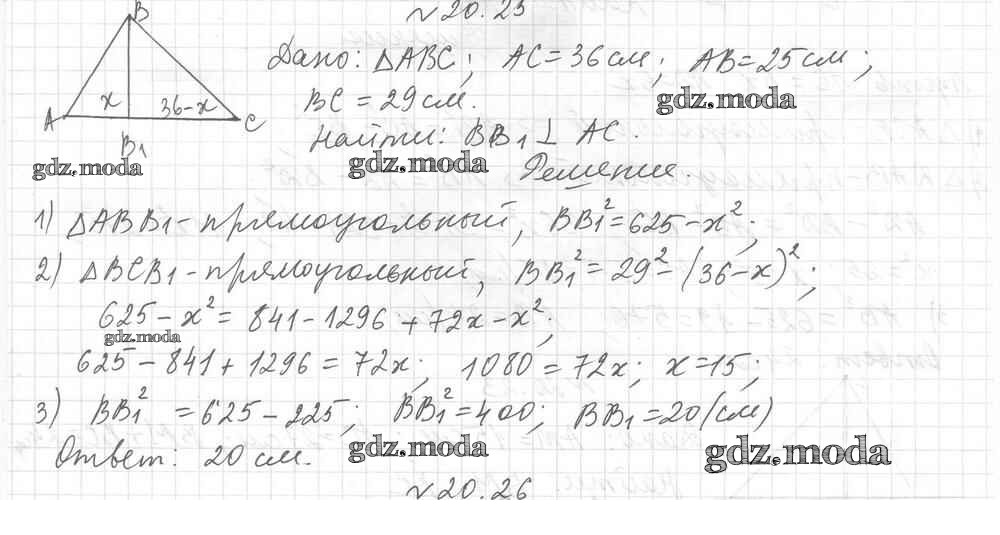 №20.25
B
Дано: △ABC; AC=36см; AB=25см;
x 36-x
BC=29см.
gdz.moda
A C
B₁
Найти: BB₁ ⊥ AC.
gdz.moda gdz.moda
Решение.
1) △ABB₁-прямоугольный, BB₁²=625-x²;
2) △BCB₁-прямоугольный, BB₁²=29²-(36-x)²;
625-x²=841-1296+72x-x²;
gdz.moda
625-841+1296=72x; 1080=72x; x=15;
3) BB₁²=625-225; BB₁²=400; BB₁=20(см)
gdz.moda gdz.moda
Ответ: 20см.
№20.26